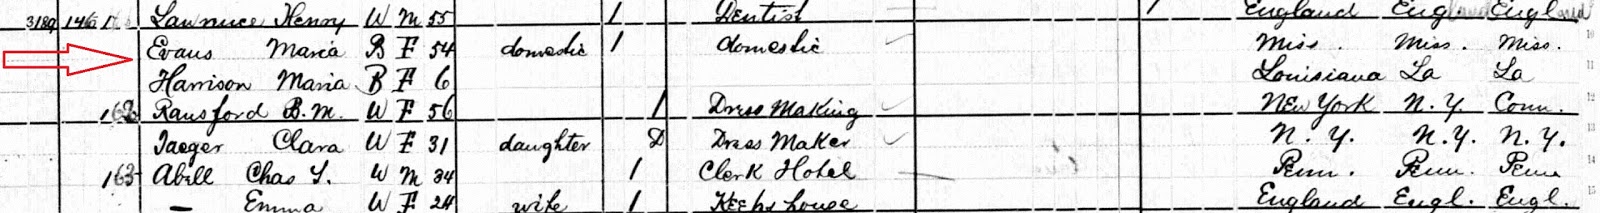 3189 146 Lawrence Henry W M 55 1 Dentist 1 England Engl. Engl
Evans Maria B F 54 domestic 1 domestic Miss. Miss. Miss.
Harrison Maria B F 6 Louisiana La La
162 Ransford B. M. W F 56 1 Dress Making New York N. Y. Conn.
Jaeger Clara W F 31 daughter D Dress Maker N. Y. N. Y. N. Y.
163 Abill Chas W M 34 1 Clerk Hotel Penn. Penn. Penn
— Emma W F 24 wife 1 Keeps house England Engl. Engl.